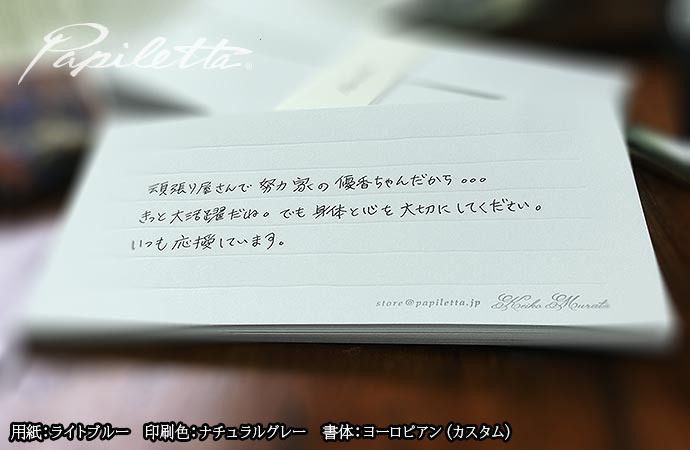 Papiletta®
頑張り屋さんで 努力家の 優香ちゃんだから。。。
きっと大活躍だね。でも 身体と心を 大切にしてください。
いつも 応援しています。
store@papiletta.jp Keiko Murata
用紙：ライトブルー 印刷色：ナチュラルグレー 書体：ヨーロピアン（カスタム）